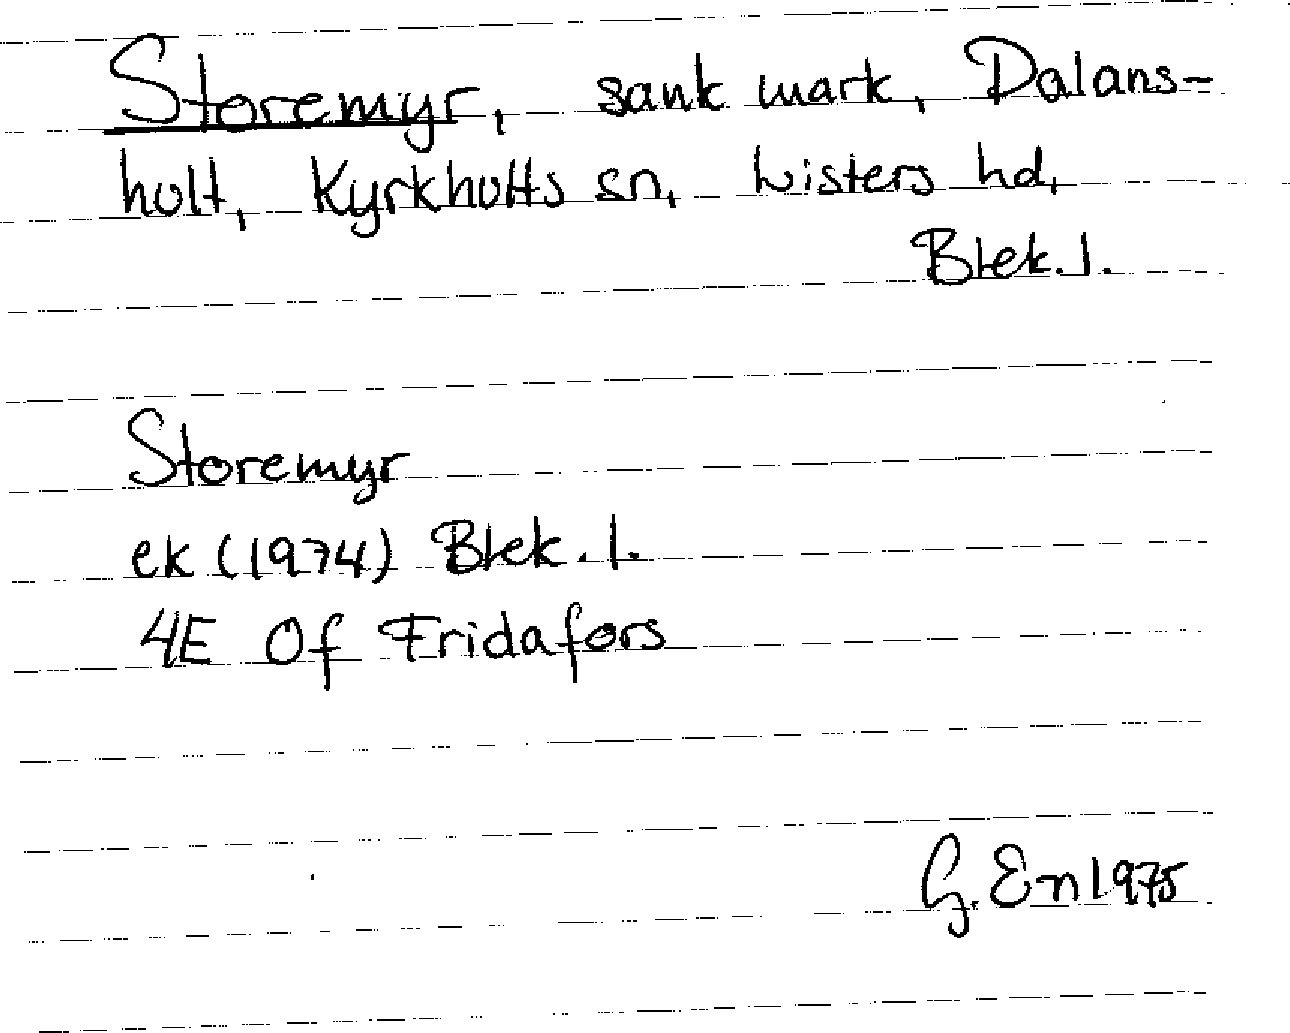 Storemyr, sank mark, Dalans-
holt, Kyrkhults sn, Listers hd,
Blek. l.
Storemyr
ek (1974) Blek. l.
4E 0f Fridafors
G. En 1975